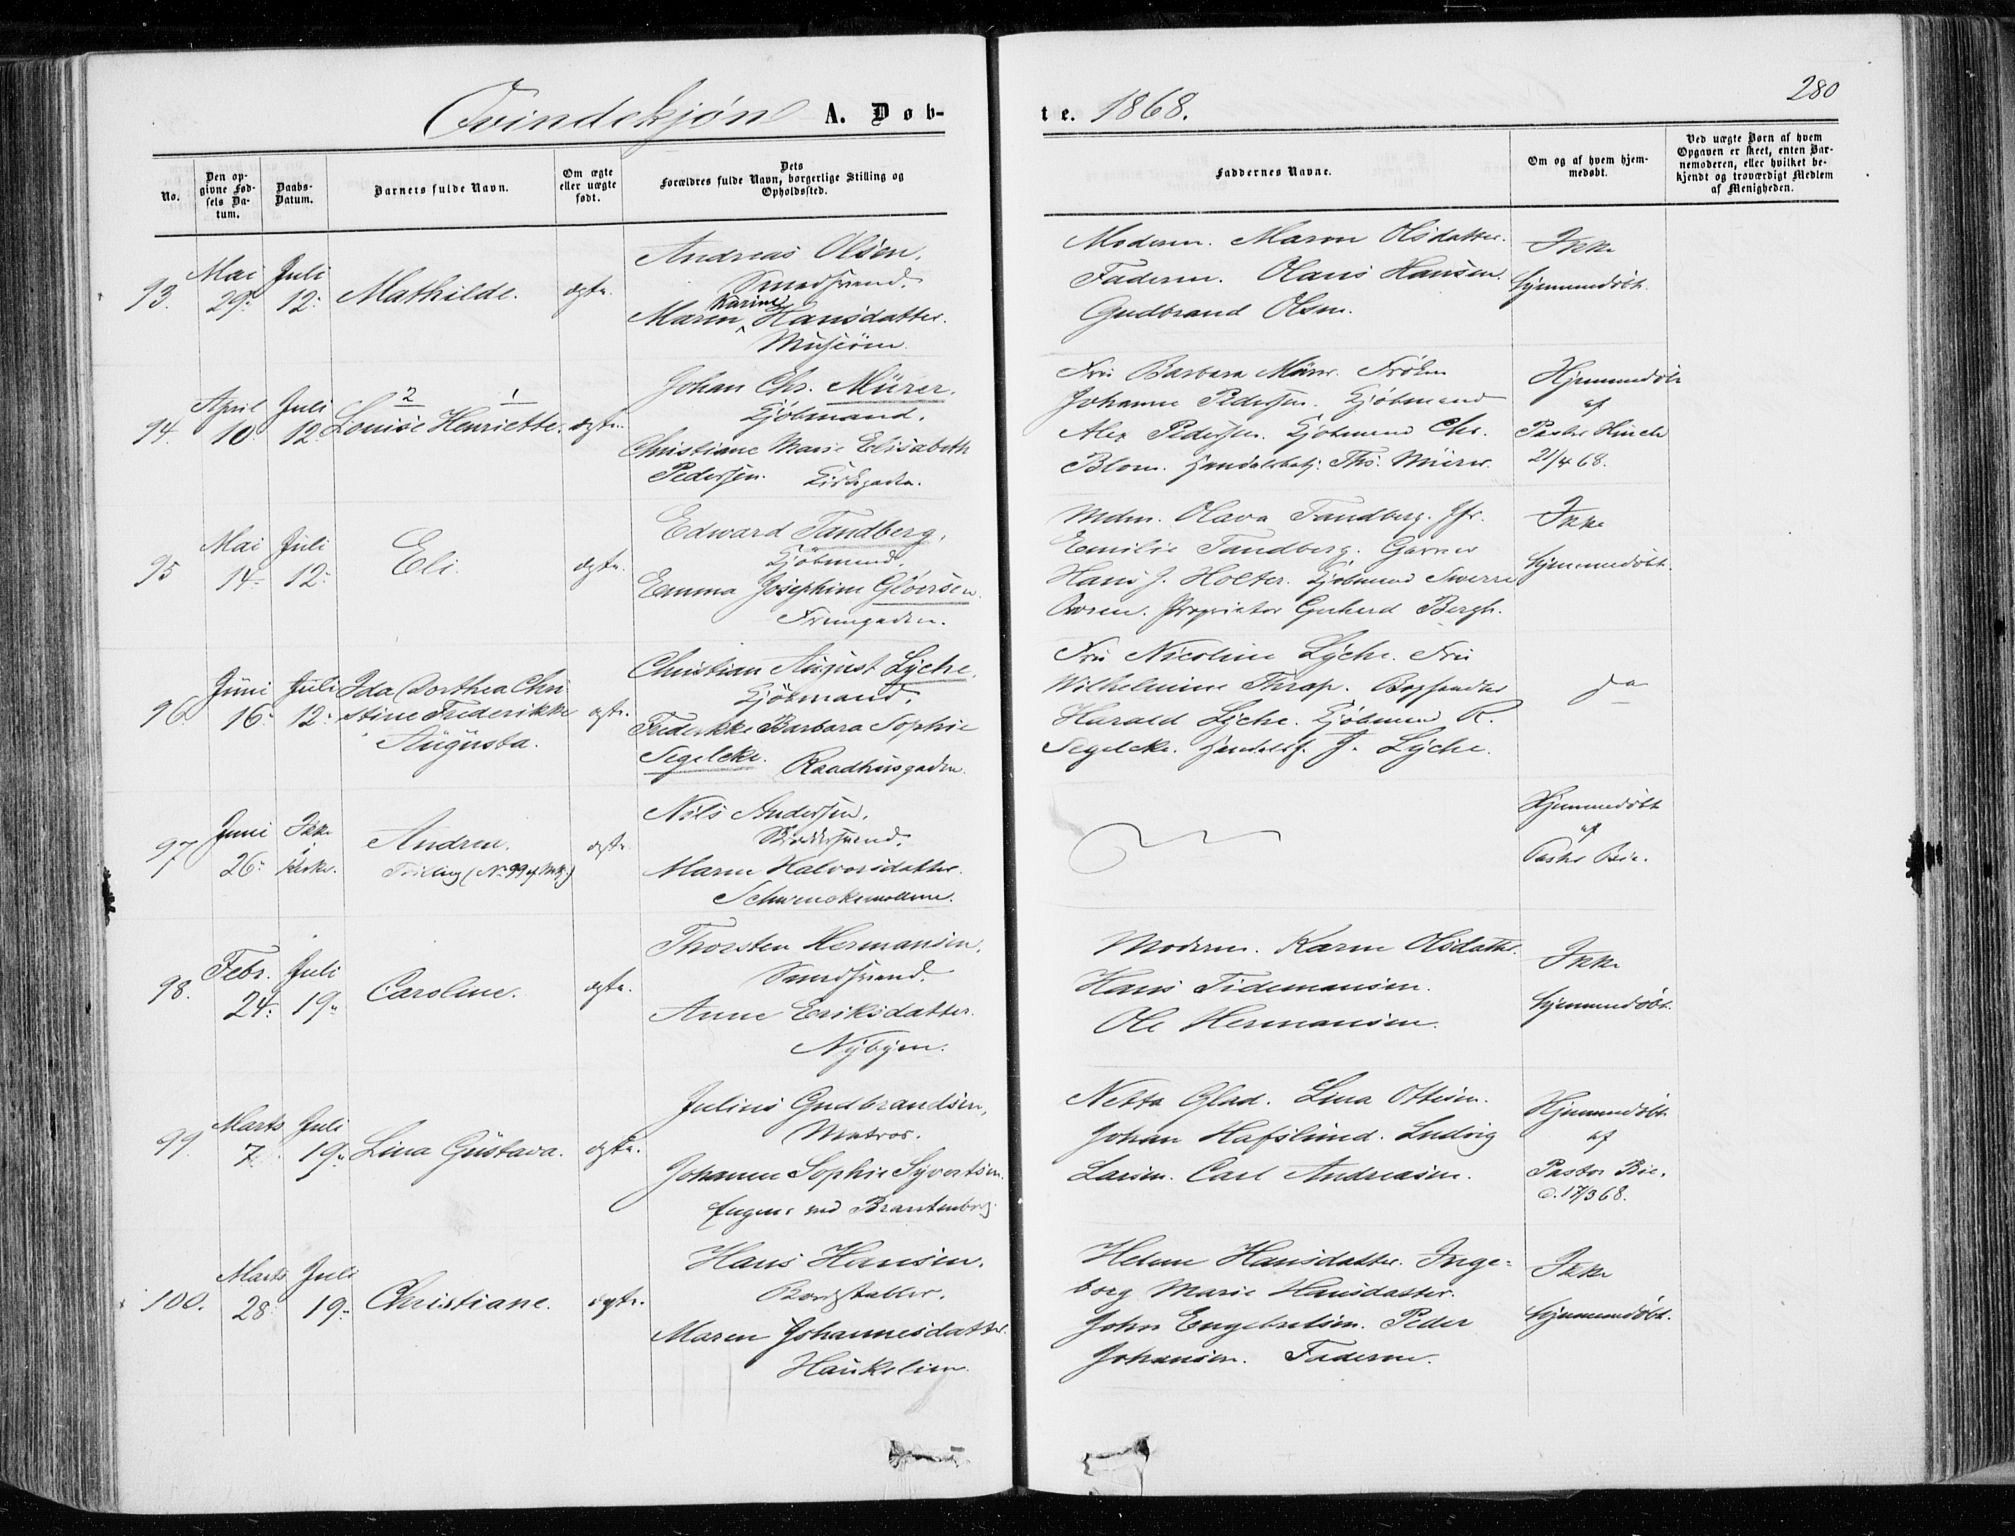 280
Qvindekjøn A. Døb-
te. 1868.
No.
Den op-
givne Fød-
sels Da-
tum.
Daabs-
Datum.
Barnets fulde Navn.
Om ægte
eller uægte
født.
Dets
Forældres fulde Navn, borgerlige Stilling og
Opholdssted.
Faddernes Navne.
Om og af hvem hjem-
medøbt.
Ved uægte Barn af hvem
Opgaven er skeet, enten Bar-
nemoderen, eller hvilket be-
kjendt og troværdigt Medlem
af Menigheden.
93. Mai 29. Juli 12. Mathilde. ægte.
Andreas Olsen,
Smedsvend.
Karine
Maren Hansdatter.
Moderen. Maren Olsdatter.
Faderen. Olaus Hansen.
Gudbrand Olsen.
Ikke
hjemmedøbt.
94. April 10 Juli 12 2 1
Louise Henriette. ægte.
Johan Chr. Mürer,
Kjøbmand.
Christiane Marie Elisabeth
Pedersen. Kirkegaden.
Fru Barbara Mürer. Frøken
Johanne Pedersen. Kjøbmand
Alex Pedersen. Kjøbmand Chr.
Blom. Ths. Mürer.
Hjemmedøbt
af
Pastor
21/4 68.
95 Mai 14. Juli 12. Eli. ægte.
Edward Tandberg,
Kjøbmand.
Emma Josephine Gløersen.
Mdm. Olava Tandberg. Jfr.
Emilie Tandberg. Garver
Hans J. Holter. Kjøbmand Sverre
Proprietær Gerhard Bergh.
Ikke
hjemmedøbt.
96 Juni 16. Juli 12. Ida Dorthea Chri-
stine Frederikke
Augusta. ægte.
Christian August Lyche,
Kjøbmand.
Frederikke Barbara Sophie
Segelcke. Raadhusgaden.
Fru Nicoline Lyche. Fru
Wilhelmine Thrap. Boghandler
Harald Lyche. Kjøbmand R.
Segelcke. J. Lyche.
97 Juni 26. Ikke i kirke. Andrea.
Tvilling (No 99 af Mkj.) ægte.
Nils Andersen,
Maren Halvorsdatter.
Hjemmedøbt
af
Pastor Bie.
98. Febr. 24. Juli 19. Caroline. ægte.
Thorsten Hermansen,
Smedsvend.
Anne Eriksdatter.
Nybyen.
Moderen. Karen Olsdatter.
Hans Tidemansen.
Ole Hermansen.
Ikke
hjemmedøbt.
99. Marts 7. Juli 19. Lina Gustava. ægte.
Julius Gudbrandsen,
Matros.
Johanne Sophie Syvertsen.
Engene ved Brantenborg.
Netta Glad. Lina Ottesen.
Johan Hafslund. Ludvig
Larsen. Carl Andreasen.
Hjemmedøbt
af
Pastor Bie.
d. 17/3 68.
100. Marts 28. Juli 19. Christiane. ægte.
Hans Hansen,
Bordstabler.
Maren Johannesdatter
Haukelien.
Helene Hansdatter. Inge-
borg Marie Hansdatter.
John Engebretsen. Peder
Johansen. Faderen.
Ikke
hjemmedøbt.